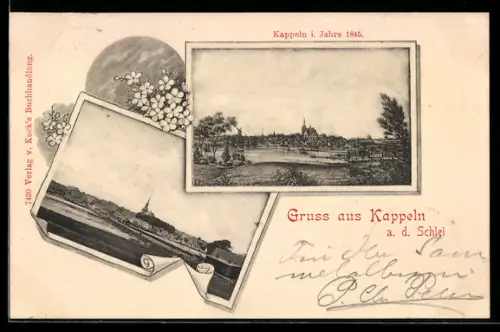 Kappeln i. Jahre 1845.
7420 Verlag v. Kock's Buchhandlung.
Gruss aus Kappeln
a. d. Schlei
Für die Sam
melalbum